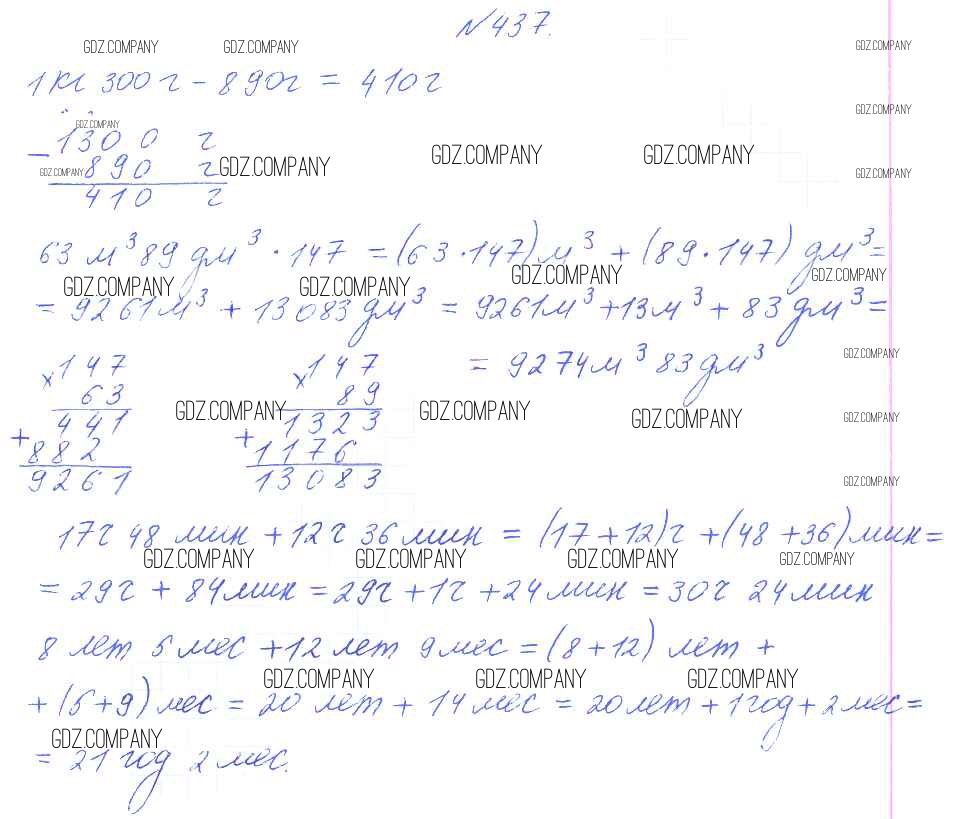 №437.
GDZ.COMPANY GDZ.COMPANY GDZ.COMPANY
1 кг 300 г - 890 г = 410 г
GDZ.COMPANY
GDZ.COMPANY
- 1300 г
GDZ.COMPANY GDZ.COMPANY
890 г
GDZ.COMPANY GDZ.COMPANY GDZ.COMPANY
410 г
63 м³ 89 дм³ · 147 = (63 · 147) м³ + (89 · 147) дм³ =
GDZ.COMPANY GDZ.COMPANY GDZ.COMPANY GDZ.COMPANY
= 9261 м³ + 13083 дм³ = 9261 м³ + 13 м³ + 83 дм³ =
= 9274 м³ 83 дм³
GDZ.COMPANY
x 147 x 147
63 89
GDZ.COMPANY GDZ.COMPANY GDZ.COMPANY GDZ.COMPANY
441 1323
+ 882 + 1176
9261 13083
GDZ.COMPANY
17 ч 48 мин + 12 ч 36 мин = (17 + 12) ч + (48 + 36) мин =
GDZ.COMPANY GDZ.COMPANY GDZ.COMPANY GDZ.COMPANY
= 29 ч + 84 мин = 29 ч + 1 ч + 24 мин = 30 ч 24 мин
8 лет 5 мес + 12 лет 9 мес = (8 + 12) лет +
GDZ.COMPANY GDZ.COMPANY GDZ.COMPANY
+ (5 + 9) мес = 20 лет + 14 мес = 20 лет + 1 год + 2 мес =
GDZ.COMPANY
= 21 год 2 мес.